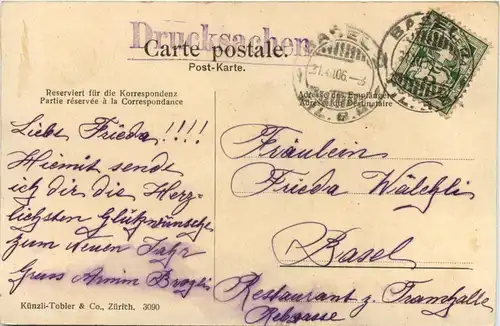 Drucksachen
Carte postale.
Post-Karte.
Reserviert für die Korrespondenz
Partie réservée à la Correspondance
Adresse des Empfängers
Adresse du Destinataire
BASEL
31.XII.06.-8
BASEL
Liebe Frieda!!!!
Hiemit sende
ich dir die Herz-
lichsten Glükwünsche
zum Neuen Jahr
Gruss Armin Brogli
Fräulein
Frieda Wälchli
Basel
Restaurant z. Tramhalle
Rebgasse
Künzli-Tobler & Co., Zürich. 3090